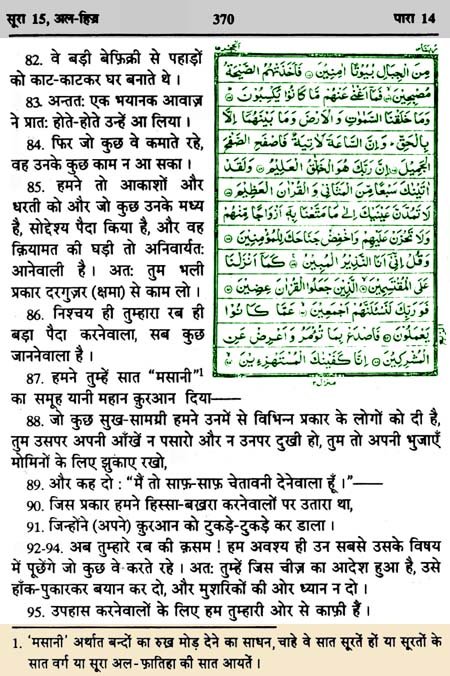 सूरा 15, अल-हिज्र 370 पारा 14
82. वे बड़ी बेफ़िक्री से पहाड़ों
को काट-काटकर घर बनाते थे।
83. अन्ततः एक भयानक आवाज़
ने प्रातः होते-होते उन्हें आ लिया।
84. फिर जो कुछ वे कमाते रहे,
वह उनके कुछ काम न आ सका।
85. हमने तो आकाशों और
धरती को और जो कुछ उनके मध्य
है, सोद्देश्य पैदा किया है, और वह
क़ियामत की घड़ी तो अनिवार्यतः
आनेवाली है। अतः तुम भली
प्रकार दरगुज़र (क्षमा) से काम लो।
86. निश्चय ही तुम्हारा रब ही
बड़ा पैदा करनेवाला, सब कुछ
जाननेवाला है।
87. हमने तुम्हें सात “मसानी”1
का समूह यानी महान क़ुरआन दिया—
مِنَ الْجِبَالِ بُيُوتًا اٰمِنِيْنَ فَاَخَذَتْهُمُ الصَّيْحَةُ
مُصْبِحِيْنَ فَمَآ اَغْنٰى عَنْهُمْ مَّا كَانُوْا يَكْسِبُوْنَ
وَمَا خَلَقْنَا السَّمٰوٰتِ وَالْاَرْضَ وَمَا بَيْنَهُمَآ اِلَّا
بِالْحَقِّ وَاِنَّ السَّاعَةَ لَاٰتِيَةٌ فَاصْفَحِ الصَّفْحَ
الْجَمِيْلَ اِنَّ رَبَّكَ هُوَ الْخَلّٰقُ الْعَلِيْمُ وَلَقَدْ
اٰتَيْنٰكَ سَبْعًا مِّنَ الْمَثَانِيْ وَالْقُرْاٰنَ الْعَظِيْمَ
لَا تَمُدَّنَّ عَيْنَيْكَ اِلٰى مَا مَتَّعْنَا بِهٖٓ اَزْوَاجًا مِّنْهُمْ
وَلَا تَحْزَنْ عَلَيْهِمْ وَاخْفِضْ جَنَاحَكَ لِلْمُؤْمِنِيْنَ
وَقُلْ اِنِّيْٓ اَنَا النَّذِيْرُ الْمُبِيْنُ كَمَآ اَنْزَلْنَا
عَلَى الْمُقْتَسِمِيْنَ الَّذِيْنَ جَعَلُوا الْقُرْاٰنَ عِضِيْنَ
فَوَرَبِّكَ لَنَسْـَٔلَنَّهُمْ اَجْمَعِيْنَ عَمَّا كَانُوْا
يَعْمَلُوْنَ فَاصْدَعْ بِمَا تُؤْمَرُ وَاَعْرِضْ عَنِ
الْمُشْرِكِيْنَ اِنَّا كَفَيْنٰكَ الْمُسْتَهْزِءِيْنَ
88. जो कुछ सुख-सामग्री हमने उनमें से विभिन्न प्रकार के लोगों को दी है,
तुम उसपर अपनी आँखें न पसारो और न उनपर दुखी हो, तुम तो अपनी भुजाएँ
मोमिनों के लिए झुकाए रखो,
89. और कह दो : “मैं तो साफ़-साफ़ चेतावनी देनेवाला हूँ।”—
90. जिस प्रकार हमने हिस्सा-बख़रा करनेवालों पर उतारा था,
91. जिन्होंने (अपने) क़ुरआन को टुकड़े-टुकड़े कर डाला।
92-94. अब तुम्हारे रब की क़सम! हम अवश्य ही उन सबसे उसके विषय
में पूछेंगे जो कुछ वे करते रहे। अतः तुम्हें जिस चीज़ का आदेश हुआ है, उसे
हाँक-पुकारकर बयान कर दो, और मुशरिकों की ओर ध्यान न दो।
95. उपहास करनेवालों के लिए हम तुम्हारी ओर से काफ़ी हैं।
1. ‘मसानी’ अर्थात बन्दों का रुख़ मोड़ देने का साधन, चाहे वे सात सूरतें हों या सूरतों के
सात वर्ग या सूरा अल-फ़ातिहा की सात आयतें।